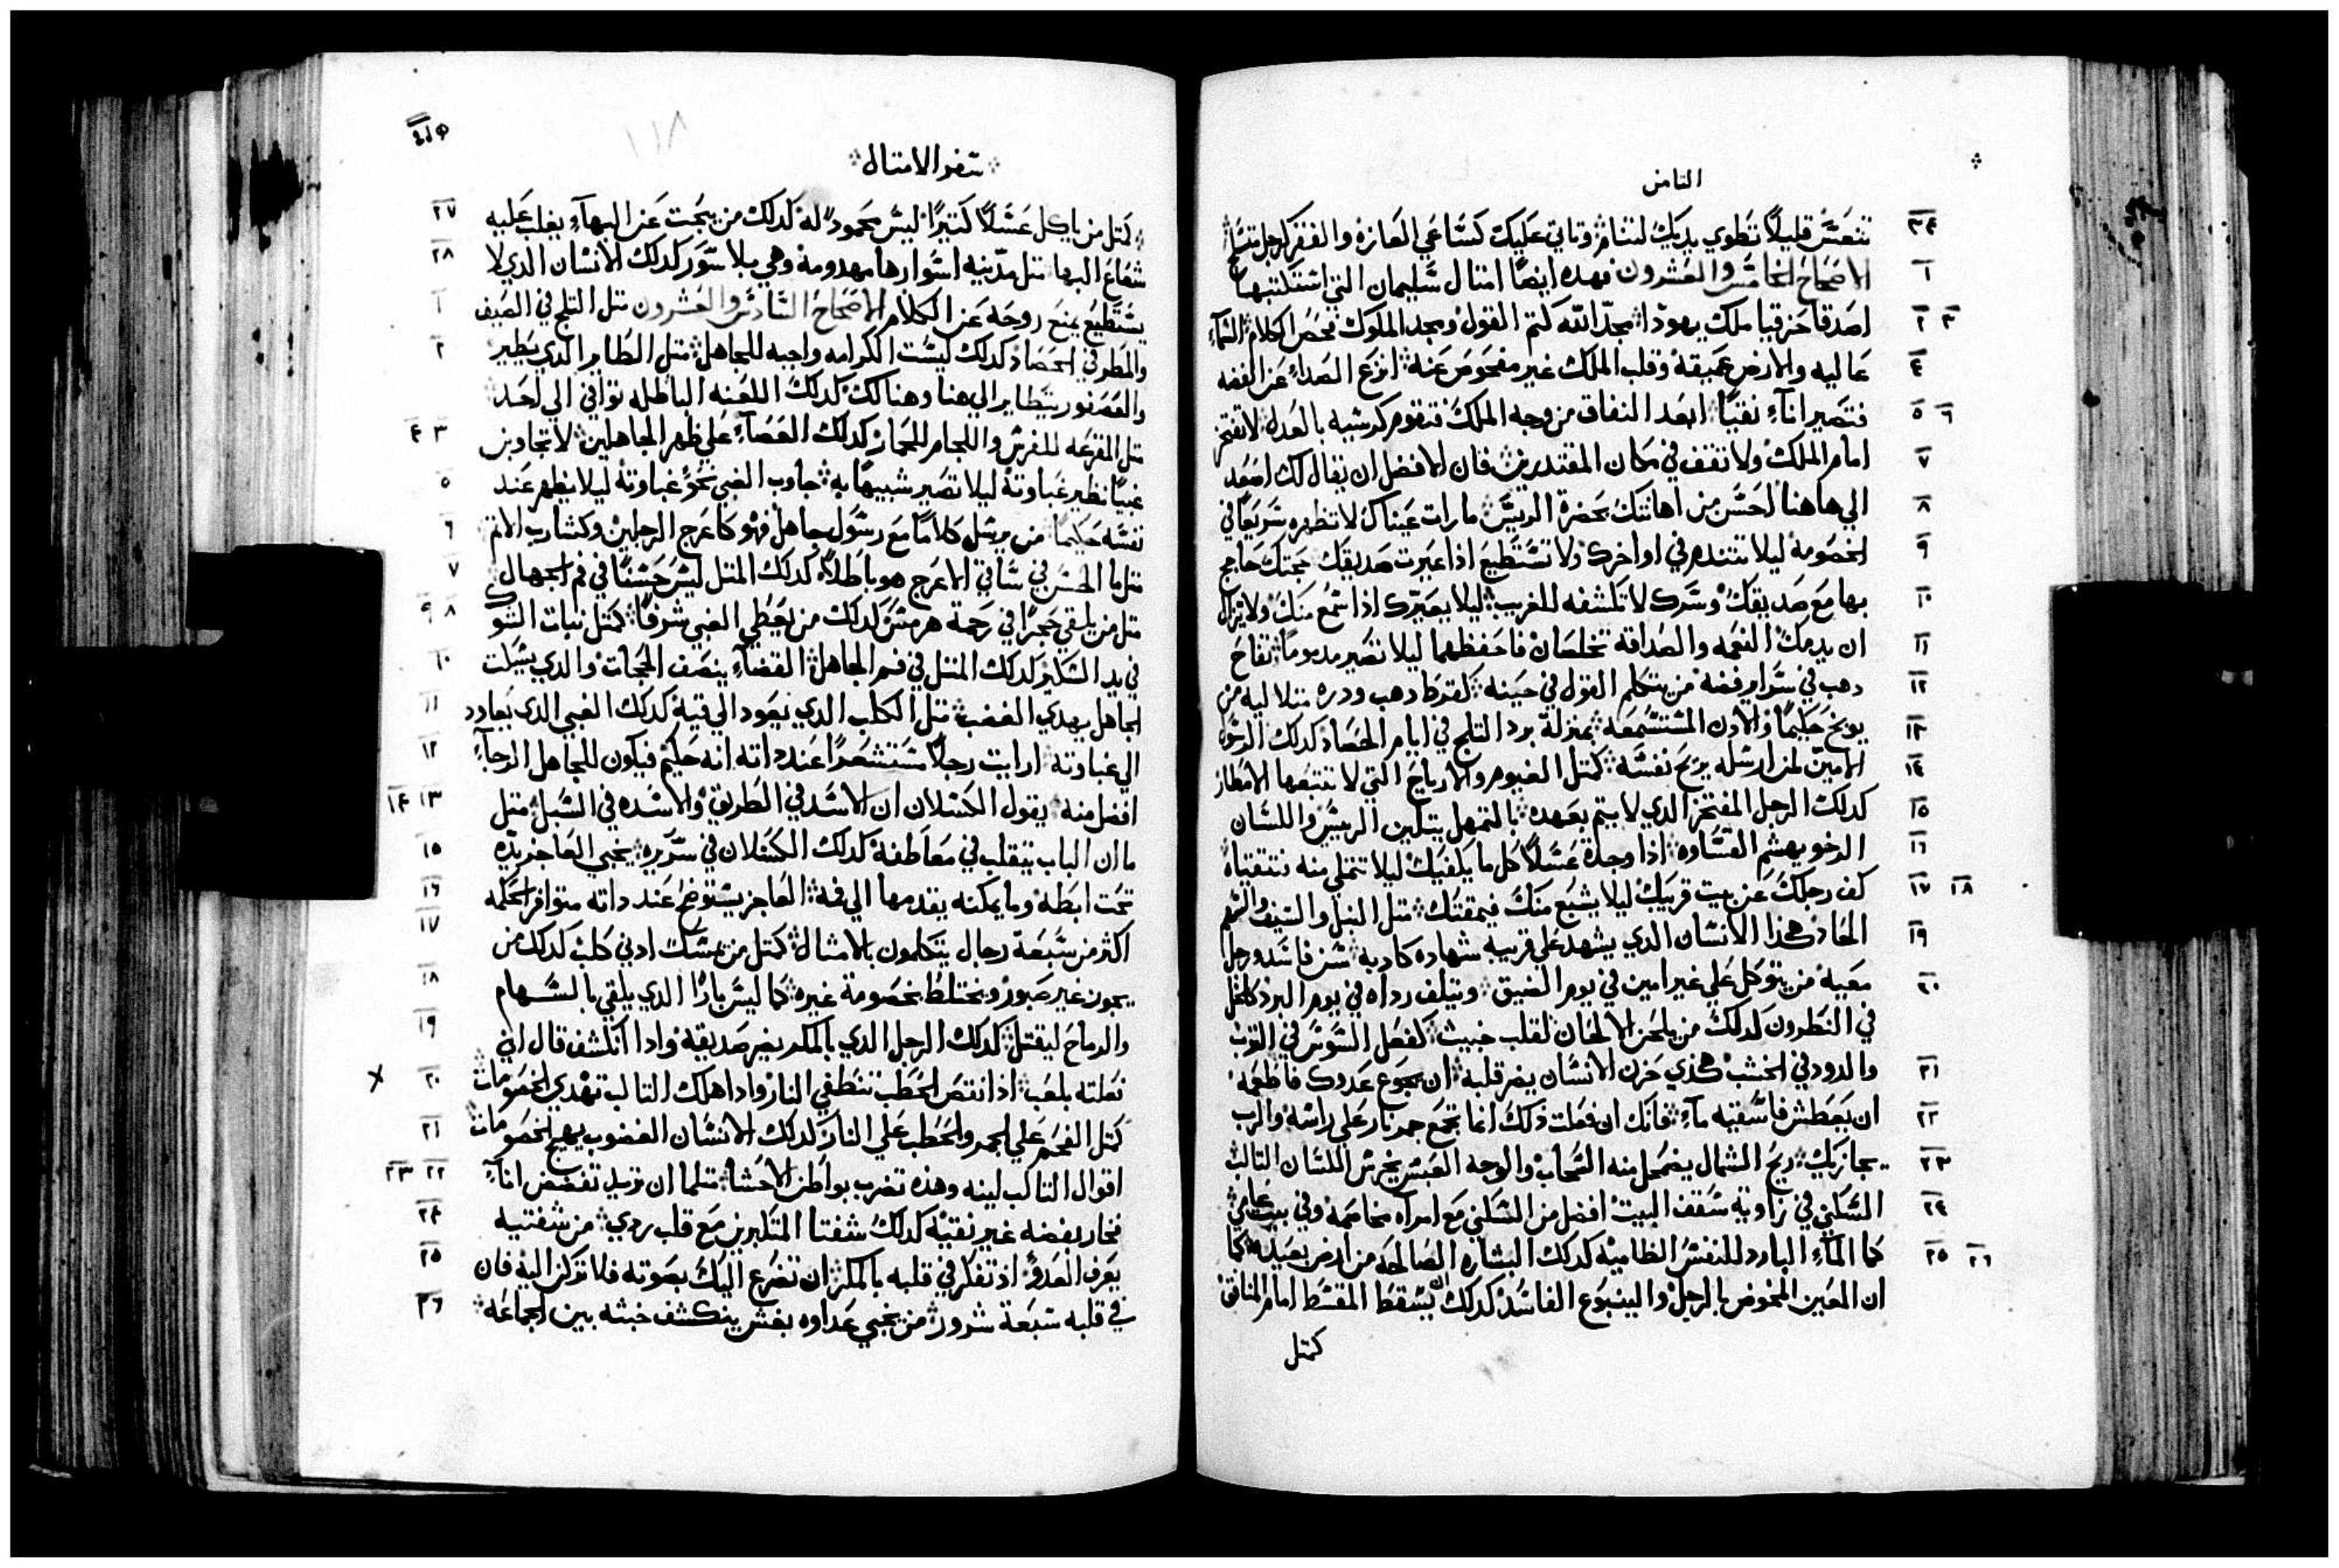 الثامن
تنعس قليلاً تطوي يديك لتنام وتاتي عليك كساعي الفاره والفقر كرجل
٣٤
الاصحاح الخامس والعشرون فهده ايضًا امتال سليمان التي استكتبها
١
اصدقا حزقيا ملك يهودا مجد الله كتم القول ومجد الملوك فحص الكلام السماء
٢ ٣
عاليه والارض عميقة وقلب الملك غير مفحوص عنه انزع الصداء عن الفضه
٤
فتصير اناءً نقيًا ابعد النفاق من وجه الملك فتقوم كرسيه بالعدل لا تفتخر
٥ ٦
امام الملك ولا تقف في مكان المقتدرين فان الافضل ان يقال لك اصعد
٧
الي هاهنا احسن من اهانتك بحضرة الريس ما رات عيناك لا تظهره سريعًا في
٨
الخصومة ليلا تتندم في اواخرك ولا تستطيع اذا عيرت صديقك حجتك حاجج
٩
بها مع صديقك وسرك لا تكشفه للغريب ليلا يعيرك اذا سمع منك ولا يزال
١٠
ان يدمك النعمه والصداقه تخلصان فاحفظهما ليلا تصير مدمومًا تفاح
١١
دهب في سراير فضه من يتكلم القول في حينه كقرط دهب ودره متلاليه من
١٢
يوبخ حكيمًا والادن المستسمعه بمنزلة برد التلج في ايام الحصاد كدلك الرسول
١٣
الامين لمن ارسله يريح نفسه كمتل الغيوم والارياح التي لا تتبعها الامطار
١٤
كدلك الرجل المفتخر الدي لا يتم بعهده بالتمهل يتلين الرييس واللسان
١٥
الرخو يهشم القساوه اذا وجدة عسلاً كل ما يكفيك ليلا تمتلي منه فتتقياه
١٦
كف رجلك عن بيت قريبك ليلا يشبع منك فيمقتك متل النبل والسيف والسهم
١٧ ١٨
الحاد هكذا الانسان الدي يشهد علي قريبه شهاده كادبه سن فاسد ورجل
١٩
معيبة من يتوكل علي غير امين في يوم الضيق ويتلف رداه في يوم البرد كالخل
٢٠
في النطرون كدلك من يلحن الالحان لقلب خبيث كفعل السوس في التوب
والدود في الخشب هكذي حزن الانسان يضر قلبه ان يجوع عدوك فاطعمه
٢١
ان يعطش فاسقيه ماء فانك ان فعلت ذلك انما تجمع جمر نار علي راسه والرب
٢٢
يجازيك ريح الشمال يضمحل منه السحاب والوجه العبس يخرس اللسان التالب
٢٣
السكني في زاوية سقف البيت افضل من السكني مع امراه مخاصمه وفي بيت عامي
٢٤
كما الماء البارد للنفس الظاميه كدلك البشاره الصالحه من ارض بعيده كما
٢٥ ٢٦
ان المعين المخوض بالرجل والينبوع الفاسد كدلك يسقط المقسط امام المنافق
كمتل
سفر الامتال
كمتل من ياكل عسلاً كتيرًا ليس محمودًا له كدلك من يبحت عن البهاء يغلب عليه
٢٧
شعاع البها متل مدينه اسوارها مهدومة وهي بلا سور كدلك الانسان الدي لا
٢٨
يستطيع يمنع روحه عن الكلام الاصحاح السادس والعشرون متل التلج في الصيف
١
والمطر في الحصاد كدلك ليست الكرامه واجبه للجاهل متل الطاير الدي يطير
٢
والعصفور يتطاير الي هنا وهنالك كدلك اللعنه الباطله توافي الي احد
متل المقرعه للفرس واللجام للحمار كدلك العصاء علي ظهر الجاهلين لا تجاوبن
٣ ٤
غبيًا نظير غباوته ليلا تصير شبيهًا به جاوب الغبي نحو غباوته ليلا يظهر عند
٥
نفسه حكيمًا من يرسل كلامًا مع رسول جاهل فهو كاعرج الرجلين وكشارب الاتم
٦
متل ما الحسن في ساقي الاعرج هو باطلاً كدلك المتل ليس حسنًا في فم الجهال
٧
متل من يلقي حجرًا في رجمة هرمس كدلك من يعطي الغبي شرفًا كمتل نبات الشوك
٨ ٩
في يد السكير كدلك المتل في فم الجاهل القضاء ينصف الحجات والدي يسكت
١٠
الجاهل يهدي الغضب متل الكلب الدي يعود الي قيه كدلك الغبي الدي يعاود
١١
الي غباوته ارايت رجلاً مستشعرًا عند داته انه حكيم فيكون للجاهل الرجاء
١٢
افضل منه يقول الكسلان ان الاسد في الطريق والاسده في السبل متل
١٣ ١٤
ما ان الباب ينقلب في معاطفه كدلك الكسلان في سريره يخبي العاجز يده
١٥
تحت ابطه وما يمكنه يقدمها الي فمه العاجز يستوضح عند داته متوافر الحكمه
١٦
اكتر من سبعة رجال يتكلمون بالامثال كمتل من يمسك ادني كلب كدلك من
١٧
يجوز غير عبور ويختلط بخصومة غيره كما ليس بارًا الدي يلقي بالسهام
١٨
والرماح ليقتل كدلك الرجل الدي بالمكر يضر صديقه واذا انكشف قال اني
١٩
فعلته بلعب اذا نقص الحطب تنطفي النار واداهلك التالب تهدي الخصومات
٢٠
كمتل الفحم علي الجمر والحطب علي النار كدلك الانسان الغضوب يهيج الخصومات
٢١
اقوال التالب لينه وهذه تضرب بواطن الاحشا متلما ان تريد تفضض اناء
٢٢ ٢٣
فخار بفضه غير نقيه كدلك شفتا المتكبرين مع قلب ردي من شفتيه
٢٤
يعرف العدو اذ تفكر في قلبه بالمكر ان تضرع اليك بصوته فلا تركن اليه فان
٢٥
في قلبه سبعة شرور من يخبي عداوه بغش ينكشف خبثه بين الجماعه
٢٦